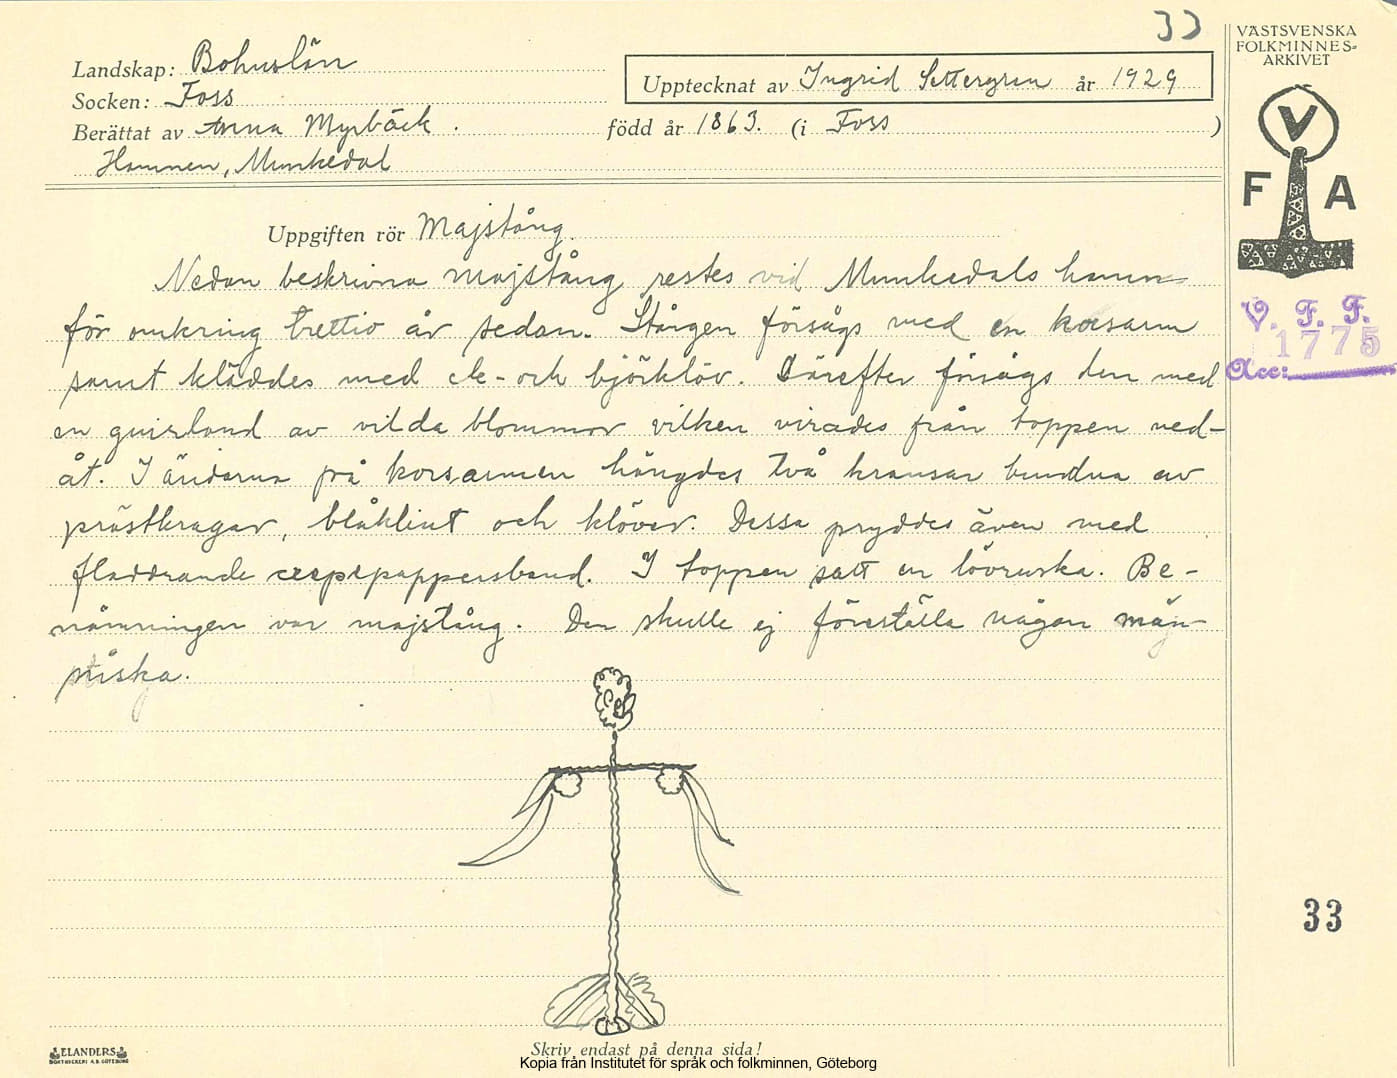 33
VÄSTSVENSKA
FOLKMINNES-
ARKIVET
Landskap: Bohuslän
Upptecknat av Ingrid Settergren år 1929
Socken: Foss
Berättat av Anna Myrbäck. född år 1863. (i Foss)
Hamnen, Munkedal
V
F A
Uppgiften rör Majstång.
Nedan beskrivna majstång restes vid Munkedals hamn
för omkring trettio år sedan. Stången försågs med en korsarm
samt kläddes med ek- och björklöv. Därefter försågs den med
en guirland av vilda blommor vilken virades från toppen ned-
åt. I ändarna på korsarmen hängdes två kransar bundna av
prästkragar, blåklint och klöver. Dessa pryddes även med
fladdrande crepepappersband. I toppen satt en lövruska. Be-
nämningen var majstång. Den skulle ej föreställa någon män-
niska.
V. F. F.
1775
Acc:
33
ELANDERS
BOKTRYCKERI A.B. GÖTEBORG
Skriv endast på denna sida!
Kopia från Institutet för språk och folkminnen, Göteborg